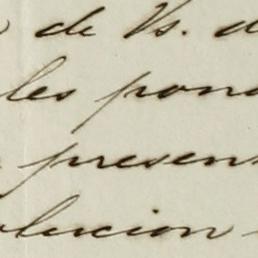 de Vs. d
les pon
presen
olucion